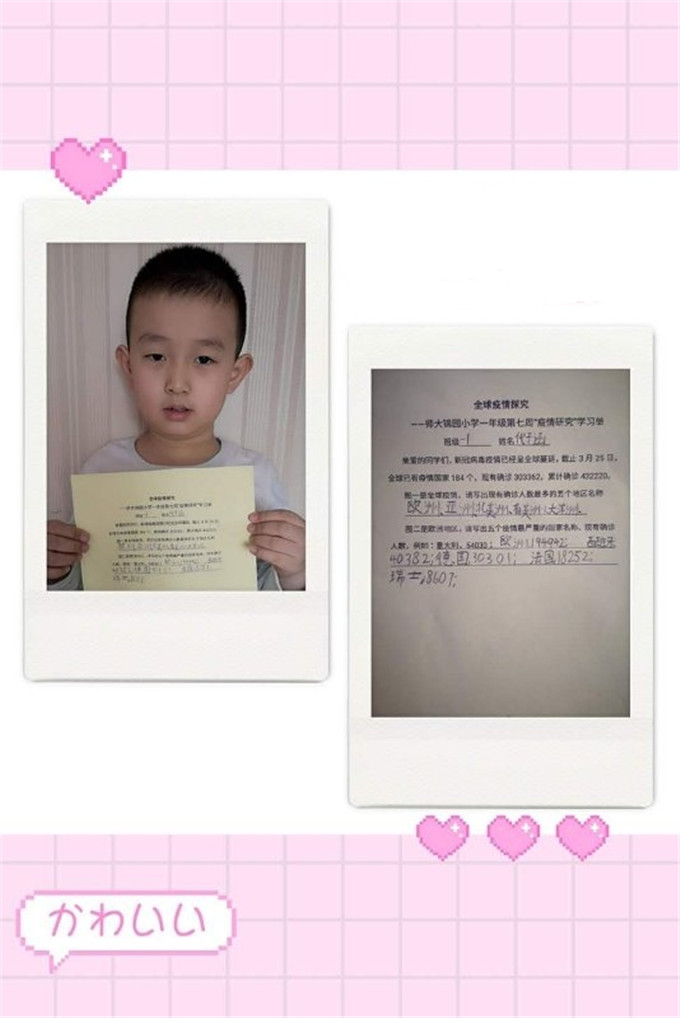 全球疫情探究
——师大锦园小学一年级第七周"疫情研究"学习单
班级 一1 姓名 代子涵
亲爱的同学们，新冠病毒疫情已经呈全球蔓延。截止3月25日，
全球已有疫情国家184个，现有确诊303362，累计确诊432220。
图一是全球疫情，请写出现有确诊人数最多的五个地区名称
欧洲、亚洲、北美洲、南美洲、大洋洲、
图二是欧洲地区，请写出五个疫情最严重的国家名称，现有确诊
人数，例如：意大利，54030；欧洲194942；西班牙
40382；德国30301；法国18252；
瑞士8607；
かわいい